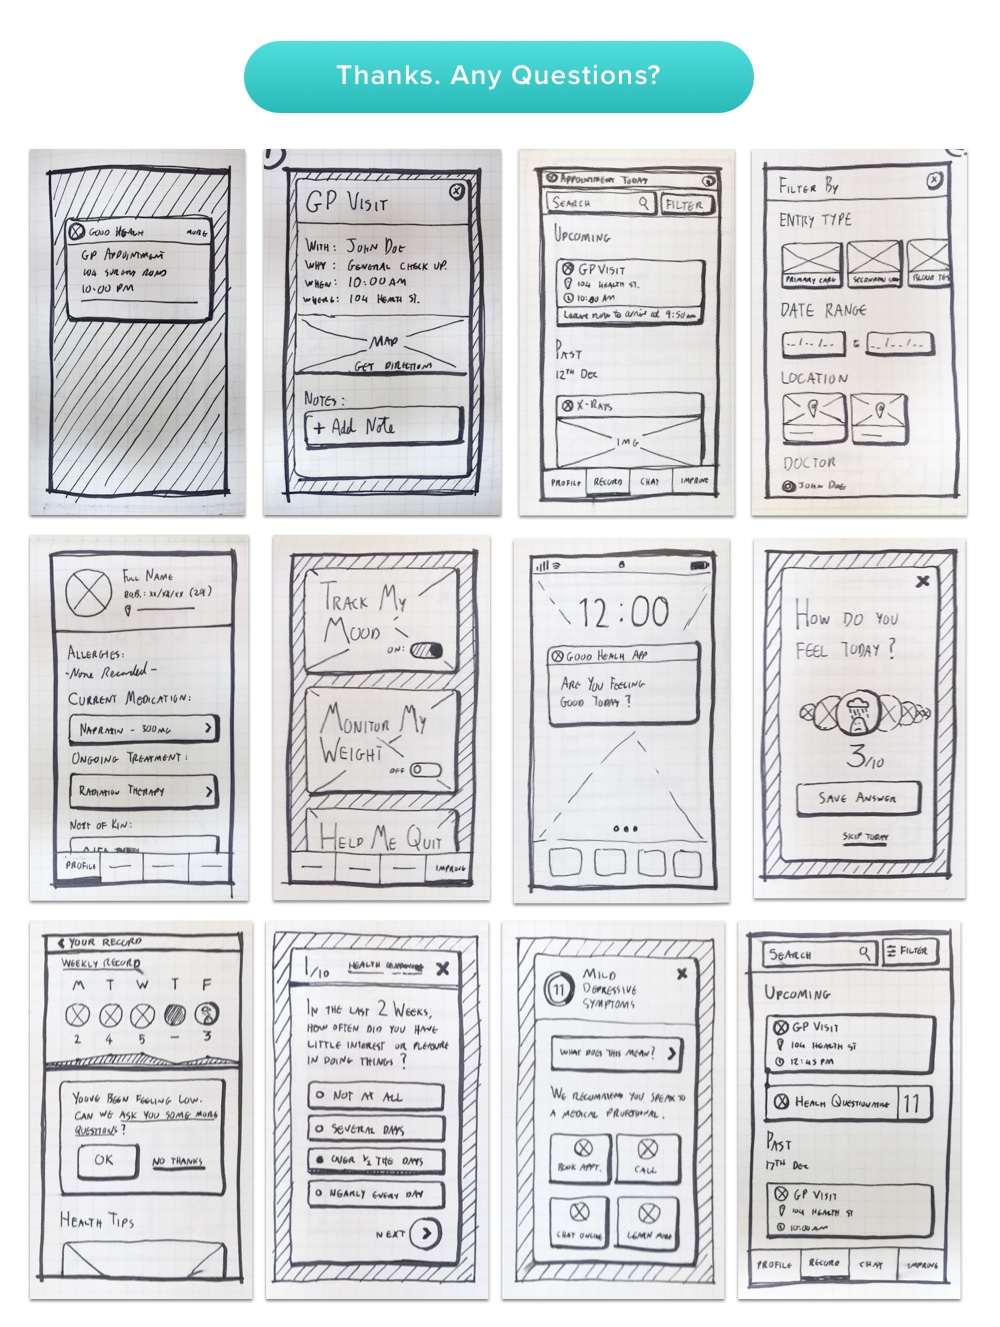 Thanks. Any Questions?
GOOD HEALH MORE
GP APPOINTMENT
104 ROAD
10:00 PM
GP VISIT
WITH: JOHN DOE
WHY: GENERAL CHECK UP.
WHEN: 10:00AM
WHERE: 104 HEALTH ST.
MAP
GET DIRECTIONS
NOTES:
+ Add Note
APPOINTMENT TODAY
SEARCH FILTER
UPCOMING
GP VISIT
104 HEALTH ST.
10:00 AM
Leave now to arrive at 9:50am
PAST
12TH DEC
X-RAYS
IMG
PROFILE RECORD CHAT IMPROVE
FILTER BY
ENTRY TYPE
PRIMARY CARE SECONDARY CARE BLOOD TES
DATE RANGE
--/--/-- --/--/--
LOCATION
DOCTOR
JOHN DOE
FULL NAME
D.O.B.: xx/xx/xx (24)
ALLERGIES:
-None Recorded-
CURRENT MEDICATION:
NAPRAXIN - 500MG
ONGOING TREATMENT:
RADIATION THERAPY
NEXT OF KIN:
PROFILE
TRACK MY
MOOD
ON:
MONITOR MY
WEIGHT
OFF
HELP ME QUIT
IMPROVE
12:00
GOOD HEALH APP
ARE YOU FEELING
GOOD TODAY?
HOW DO YOU
FEEL TODAY?
3/10
SAVE ANSWER
SKIP TODAY
< YOUR RECORD
WEEKLY RECORD
M T W T F
2 4 5 - 3
YOUVE BEEN FEELING LOW.
CAN WE ASK YOU SOME MORE
QUESTIONS?
OK NO THANKS
HEALTH TIPS
1/10 HEALTH QUESTIONNAIRE
IN THE LAST 2 WEEKS,
HOW OFTEN DID YOU HAVE
LITTLE INTEREST OR PLEASURE
IN DOING THINGS?
NOT AT ALL
SEVERAL DAYS
OVER 1/2 THE DAYS
NEARLY EVERY DAY
NEXT >
11 MILD
DEPRESSIVE
SYMPTOMS
WHAT DOES THIS MEAN? >
WE RECOMMEND YOU SPEAK TO
A MEDICAL PROFESIONAL.
BOOK APPT. CALL
CHAT ONLINE LEARN MORE
SEARCH FILTER
UPCOMING
GP VISIT
104 HEALTH ST
12:45 PM
HEALH QUESTIONNAIRE 11
PAST
17TH DEC
GP VISIT
104 HEALTH ST
10:00AM
PROFILE RECORD CHAT IMPROVE